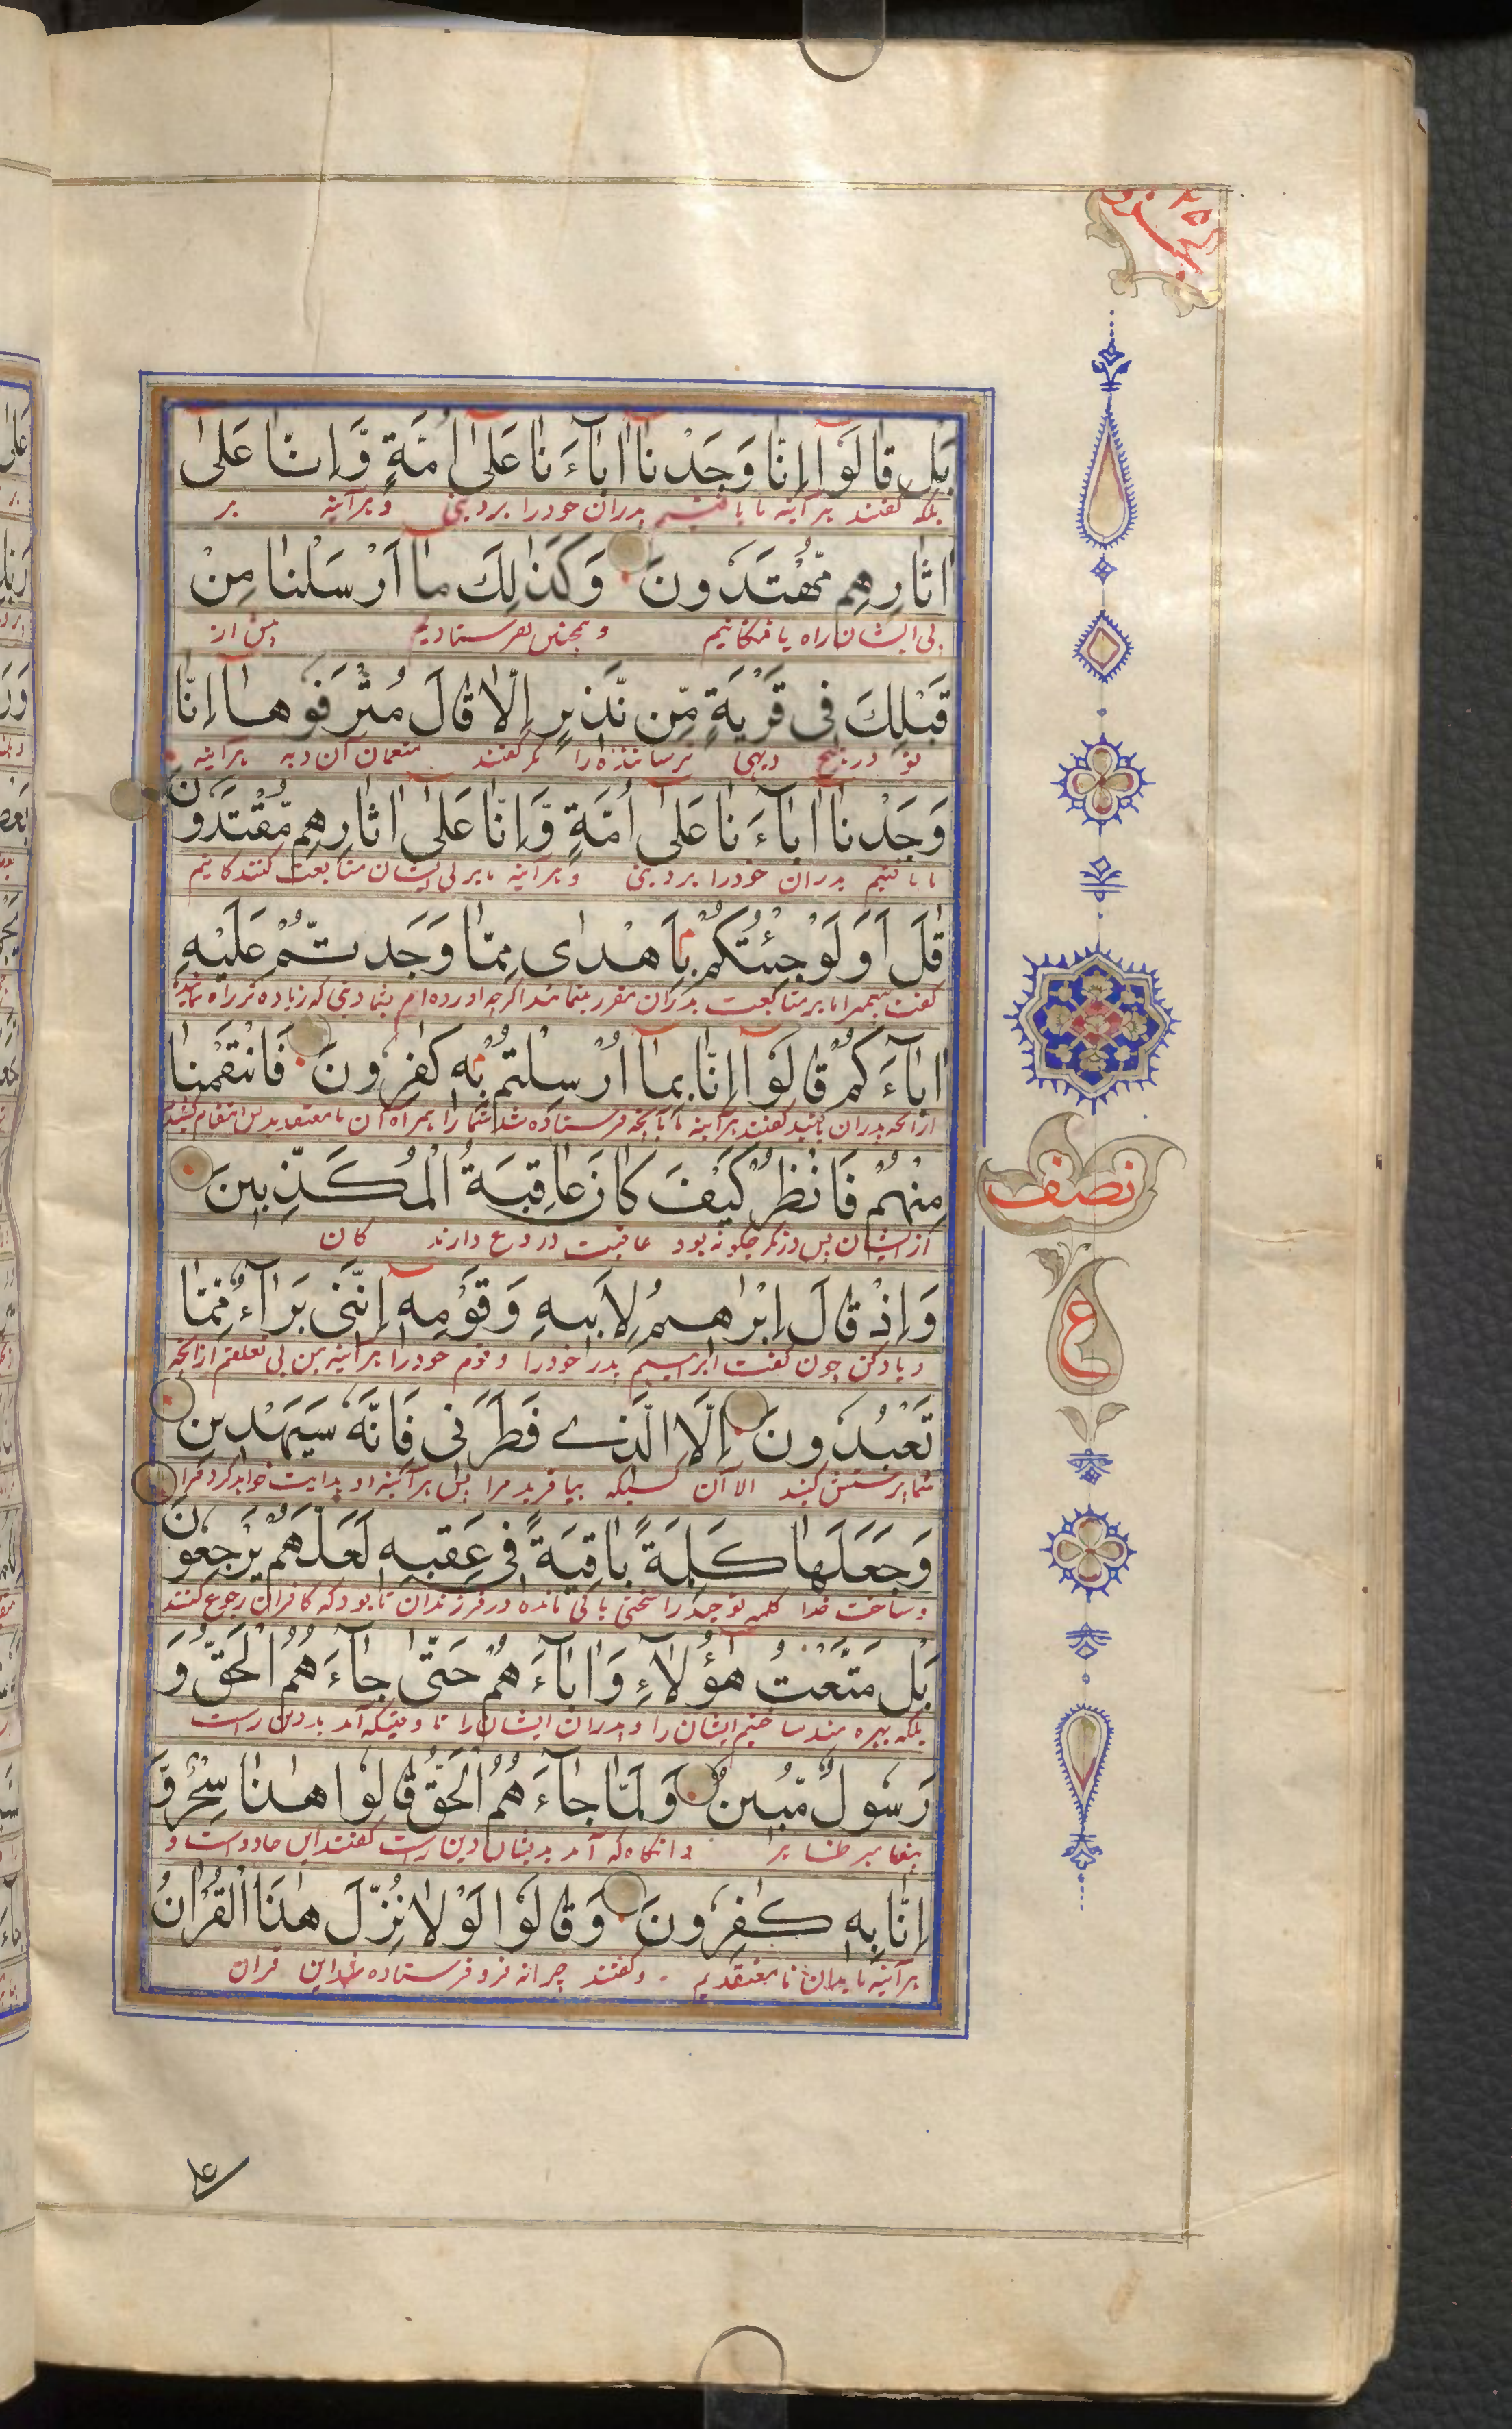 الجزو ٢٥
بَلْ قَالُوٓا اِنَّا وَجَدْنَآ اٰبَآءَنَا عَلٰٓى اُمَّةٍ وَّاِنَّا عَلٰٓى
بلکه گفتند هر آینه ما یافتیم پدران خود را بر دینی و هر آینه بر
اٰثَارِهِمْ مُّهْتَدُوْنَ وَكَذٰلِكَ مَآ اَرْسَلْنَا مِنْ
پی ایشان راه یافتگانیم و همچنین نفرستادیم پیش از
قَبْلِكَ فِى قَرْيَةٍ مِّنْ نَّذِيْرٍ اِلَّا قَالَ مُتْرَفُوْهَآ اِنَّا
تو در هیچ دیهی ترساننده را مگر گفتند متنعمان آن دیه هر آینه
وَجَدْنَآ اٰبَآءَنَا عَلٰٓى اُمَّةٍ وَّاِنَّا عَلٰٓى اٰثَارِهِمْ مُّقْتَدُوْنَ
ما یافتیم پدران خود را بر دینی و هر آینه ما بر پی ایشان متابعت کنندگانیم
قٰلَ اَوَلَوْ جِئْتُكُمْ بِاَهْدٰى مِمَّا وَجَدتُّمْ عَلَيْهِ
گفت پیغمبر اما بر متابعت پدران مقرر شما اگرچه آورده‌ام بشما دینی که زیاده‌تر راه نماینده
اٰبَآءَكُمْ قَالُوٓا اِنَّا بِمَآ اُرْسِلْتُمْ بِهٖ كٰفِرُوْنَ فَانْتَقَمْنَا
از آنچه پدران گفتند هر آینه ما بآنچه فرستاده شد شما را همراه آن نا معتقد
مِنْهُمْ فَانْظُرْ كَيْفَ كَانَ عَاقِبَةُ الْمُكَذِّبِيْنَ
از ایشان پس درنگر چگونه بود عاقبت دروغ دارندگان
وَاِذْ قَالَ اِبْرٰهِيْمُ لِاَبِيْهِ وَقَوْمِهٖٓ اِنَّنِىْ بَرَآءٌ مِّمَّا
و یاد کن چون گفت ابراهیم پدر خود را و قوم خود را هر آینه من بی تعلقم از آنچه
تَعْبُدُوْنَ اِلَّا الَّذِىْ فَطَرَنِىْ فَاِنَّهٗ سَيَهْدِيْنِ
شما پرستش کنید الا آن کسیکه بیافرید مرا پس هر آینه او هدایت خواهد کرد مرا
وَجَعَلَهَا كَلِمَةً بَاقِيَةً فِىْ عَقِبِهٖ لَعَلَّهُمْ يَرْجِعُوْنَ
و ساخت خدا کلمه توحید را سخنی باقی مانده در فرزندان تا بود که کافران رجوع کنند
بَلْ مَتَّعْتُ هٰٓؤُلَآءِ وَاٰبَآءَهُمْ حَتّٰى جَآءَهُمُ الْحَقُّ وَ
بلکه بهره مند ساختیم ایشان را و پدران ایشان را تا وقتیکه آمد بدیشان دین راست
رَسُوْلٌ مُّبِيْنٌ وَلَمَّا جَآءَهُمُ الْحَقُّ قَالُوْا هٰذَا سِحْرٌ وَّ
پیغامبر ظاهر و آنگاه که آمد بدیشان دین راست گفتند این جادوست و
اِنَّا بِهٖ كٰفِرُوْنَ وَقَالُوْا لَوْلَا نُزِّلَ هٰذَا الْقُرْاٰنُ
هر آینه ما بدان نا معتقدیم و گفتند چرا نه فرو فرستاده شد این قرآن
نصف
ع